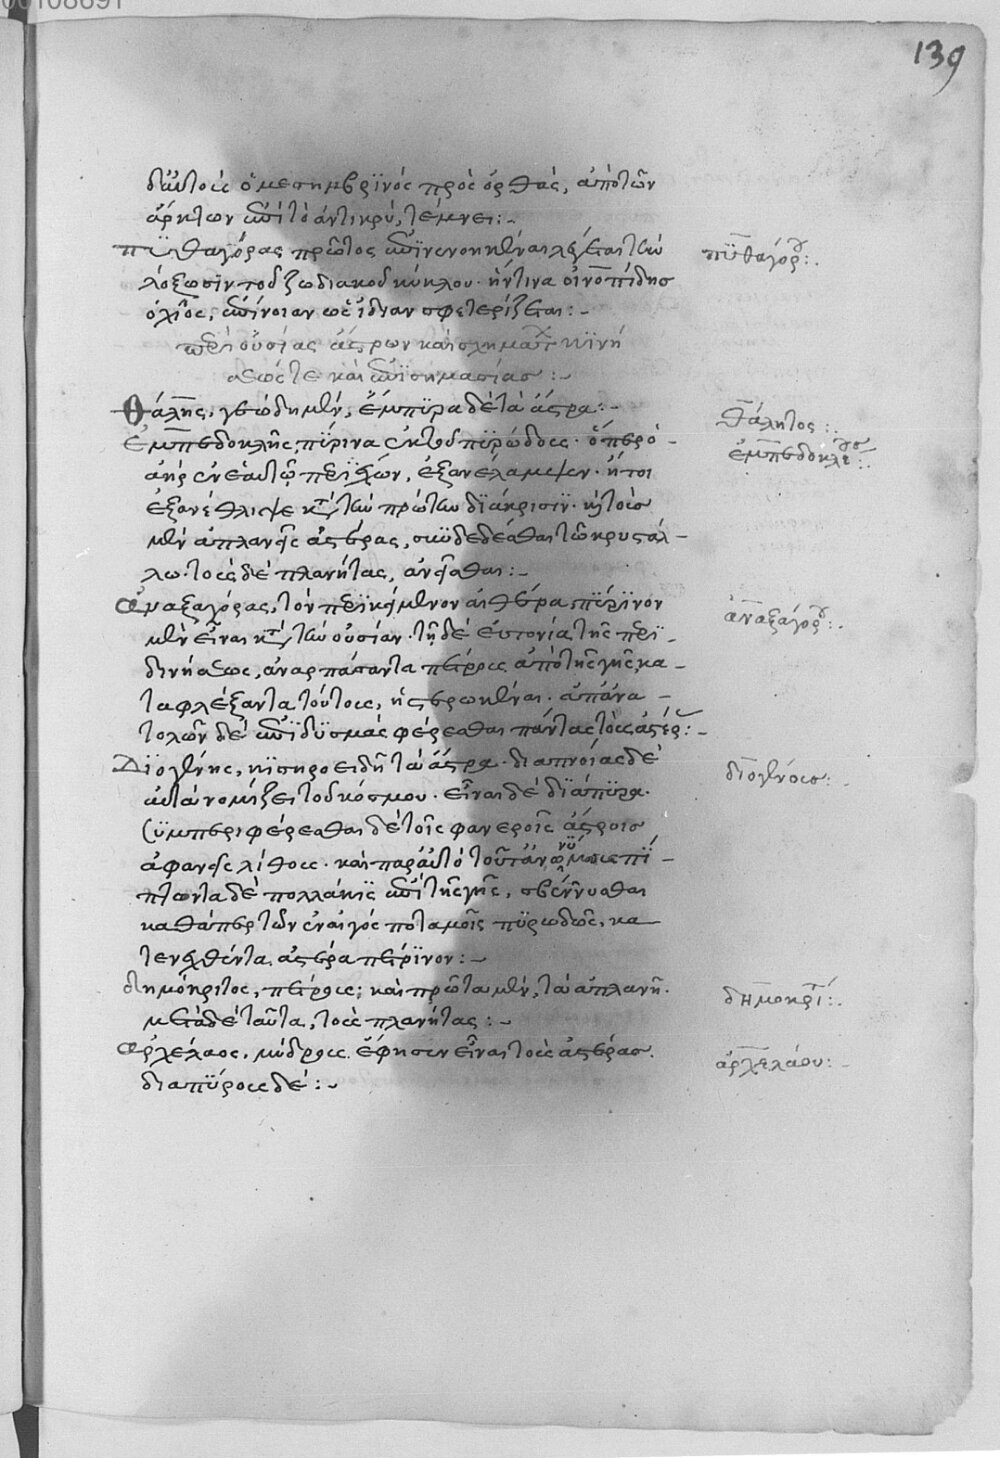 139
δ' αὐτοὺς ὁ μεσημβρϊνὸς πρὸς ὀρθὰς, ἀπὸ τῶν
ἄρκτων ἐπὶ τὸ ἀντικρὺ, τέμνει:-
πϋθαγόρας πρῶτος ἐπϊνενοηκέναι λέγεται τὴν
λόξωσϊν τοῦ ζωδιακοῦ κύκλου· ἥντινα οἰνοπίδης
ὁ χῖος, ἐπίνοιαν ὡς ἰδίαν σφετερίζεται:-
πϋθαγόρ:.
περὶ οὐσίας ἄστρων καὶ σχήματ κϊνή
σεώς τε καὶ ἐπϊσημασίας:-
θάλης, γεώδη μὲν, ἔμπϋρα δὲ τὰ ἄστρα:-
θάλητος:.
ἐμπεδοκλῆς, πύρινα ἐκ τοῦ πϋρώδους· ὅπερ ὁ-
ἐμπεδοκλέ:.
ἀὴρ ἐν ἑαυτῷ περϊέχων, ἐξανέλαμψεν· ἤτοι
ἐξανέθλιψε κτ τὴν πρώτην διάκρισιν· κ τοὺς
μὲν ἀπλανεῖς ἀστέρας, συνδεδέσθαι τῶ κρυστάλ-
λω· τοὺς δὲ πλανήτας, ἀνεῖσθαι:-
ἀναξαγόρας, τὸν περϊκείμενον αἰθέρα πύρϊνον
ἀναξαγόρ:.
μὲν εἶναι κτ τὴν οὐσίαν· τῇ δὲ εὐτονία τῆς περϊ-
δινήσεως, ἀναρπάσαντα πέτρους ἀπὸ τῆς γῆς κα-
ταφλέξαντα τούτους, ἠστερωκέναι· ἀπ' ἀνα-
τολῶν δὲ ἐπὶ δϋσμὰς φέρεσθαι πάντας τοὺς ἀστέρ:-
Διογένης, κϊσηροειδῆ τὰ ἄστρα· διαπνοίας δὲ
διογένους:.
αὐτὰ νομίζει τοῦ κόσμου· εἶναι δὲ διάπϋρα·
Συμπεριφέρεσθαι δὲ τοῖς φανεροῖς ἄστροις
ἀφανεῖς λίθους· καὶ παρ' αὐτὸ τοῦτ' ἀνωνύμους· πί-
πτοντα δὲ πολλάκϊς ἐπὶ τῆς γῆς, σβέννυσθαι
καθάπερ τὸν ἐν αἰγὸς ποταμοῖς πϋρωδῶς, κα-
τενεχθέντα ἀστέρα πέτρϊνον:-
δημόκριτος, πέτρους; καὶ πρῶτα μὲν, τὰ ἀπλανῆ·
δημοκρί:.
μετὰ δὲ ταῦτα, τοὺς πλανήτας:-
ἀρχέλαος, μύδρους ἔφησεν εἶναι τοὺς ἀστέρας·
ἀρχελάου:-
διαπϋρους δέ:-